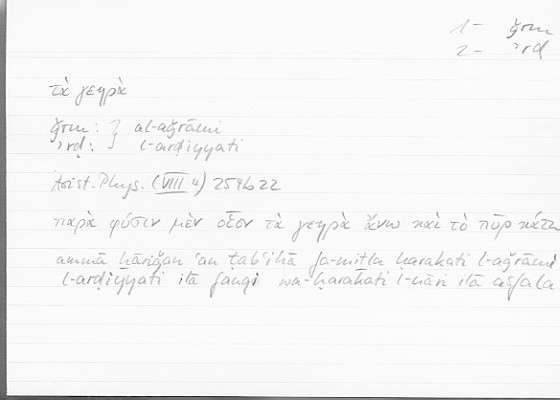 1- ǧrm
2- ʾrḍ
τὰ γεηρὰ
ǧrm: } al-aǧrāmi
ʾrḍ: } l-arḍiyyati
Arist. Phys. (VIII 4) 254b22
παρὰ φύσιν μὲν οἷον τὰ γεηρὰ ἄνω καὶ τὸ πῦρ κάτω
ammā ḫāriǧan ʿan ṭabʿihā fa-miṯla ḥarakati l-aǧrāmi
l-arḍiyyati ilā fauqi wa-ḥarakati l-nāri ilā asfala